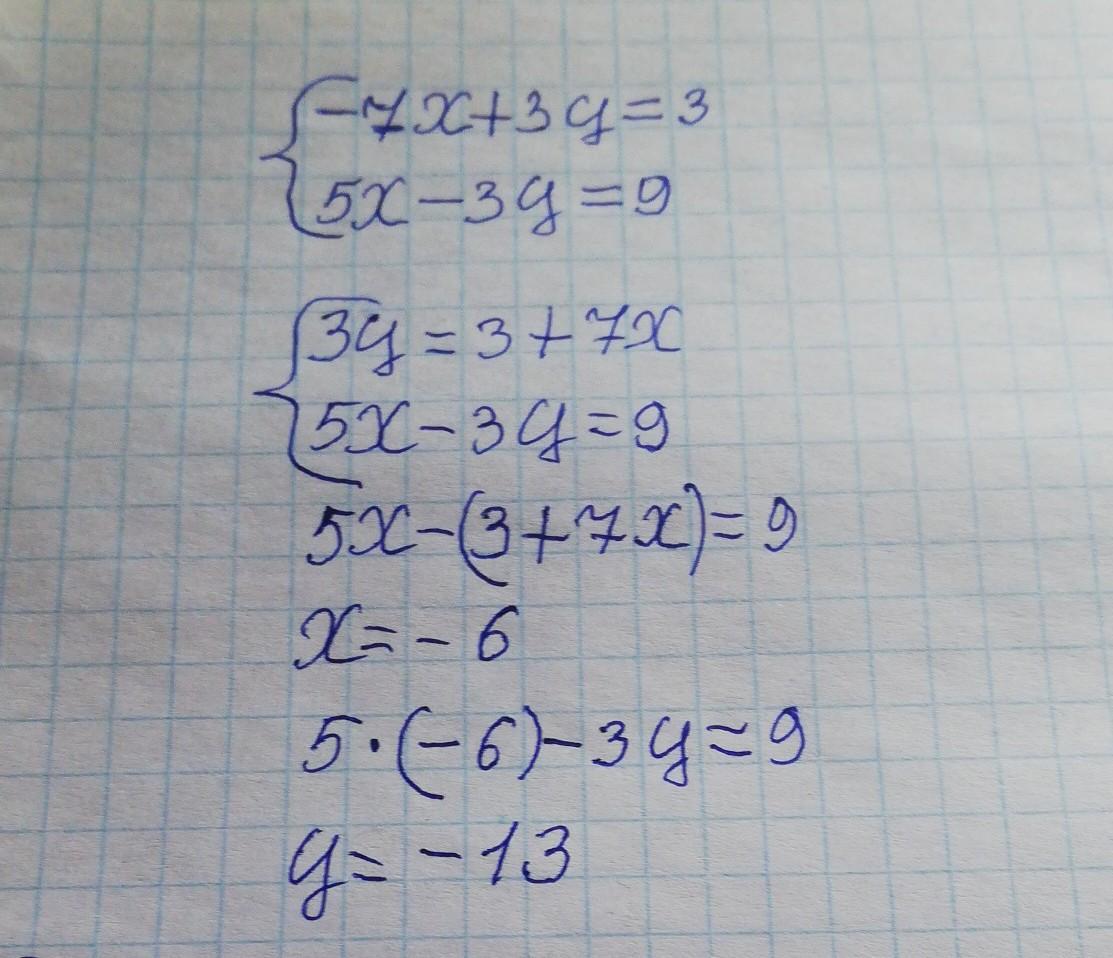 -7x+3y=3
5x-3y=9
3y=3+7x
5x-3y=9
5x-(3+7x)=9
x=-6
5·(-6)-3y=9
y=-13